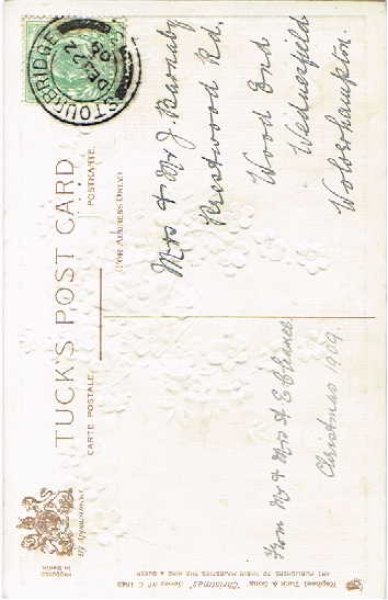 TUCK'S POST CARD
CARTE POSTALE.
POSTKARTE.
(FOR ADDRESS ONLY.)
By Appointment.
PRODUCED
in Berlin
STOURBRIDGE
DE 24
Mrs & Mr J. Barnaby
Prestwood Rd.
Wood End
Wednesfield
Wolverhampton.
From Mr & Mrs A E Chance
Christmas 1909.
Raphael Tuck & Sons' "Christmas" Series No. C
ART PUBLISHERS TO THEIR MAJESTIES THE KING & QUEEN